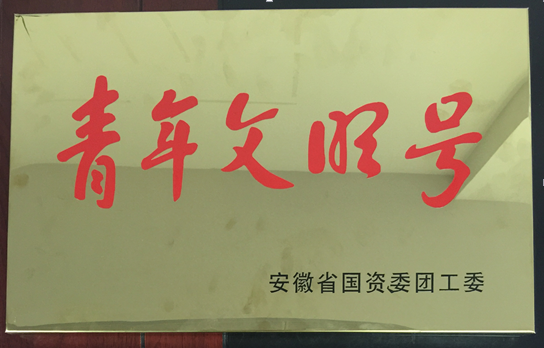 青年文明号
安徽省国资委团工委